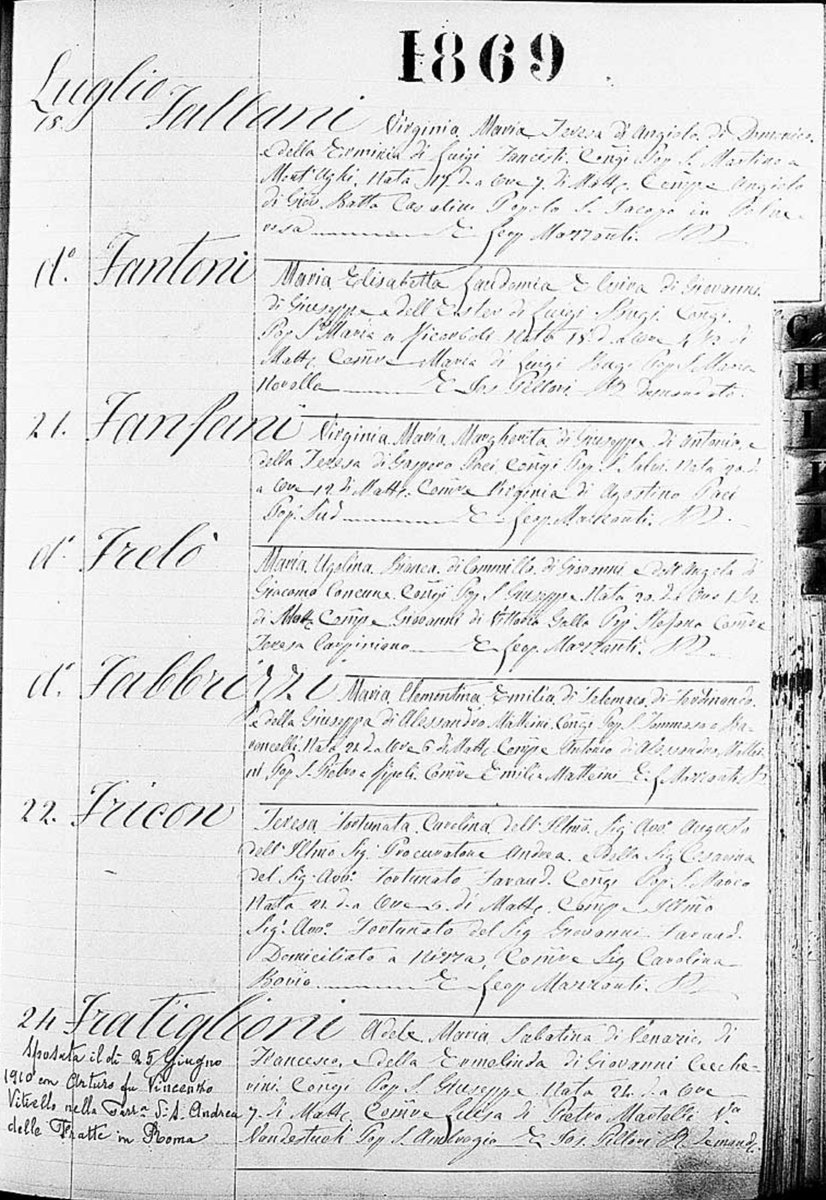 1869
Luglio
18. Fallani Virginia Maria Teresa di Angiolo di Domenico
e della Erminia di Luigi Coniugi Pop. S. Martino a
Mont'Ughi. Nata 17 d.o a Ore 7 di Matt. Comp.e Angiolo
di Giov. Batta Casalini Popolo S. Jacopo in Polve-
rosa E Leop. Marzanti.
d.o Fantoni Maria Elisabetta Laudomia Elvira di Giovanni
di Giuseppe e dell'Ester di Luigi Bugi. Congi.
Pop. S. Maria a Ricorboli Nata 18 d.o a Ore
Matt. Com.re Maria di Luigi Pop. S. Maria
Novella E Jos. Pilloni
21. Fanfani Virginia Maria Margherita di Giuseppe di Antonio, e
della Teresa di Gaspero Paci Congi Pop. S. Salvi. Nata 20 d.
a Ore 12 di Matt. Com.re Virginia di Agostino Paci
Pop. Sud E Leop. Marzanti.
d.o Frelò Maria Ugolina Bianca di Cammillo di Giovanni e dell'Angela di
Giacomo Congi Pop. S. Giuseppe Nata 20 d.o
di Matt. Comp.e Giovanni di Vittorio Gallo Pop. Stefano Com.re
Teresa E Leop. Marzanti.
d.o Fabbrizzi Maria Clementina Emilia di Telemaco di Ferdinando
e della Giuseppa di Alessandro Matteini Congi Pop. S. Tommaso a Ba-
roncelli. Nata 21 d.o a Ore 6 di Matt. Comp.e Antonio di Alessandro Mattei-
ni Pop. S. Pietro a Ripoli. Com.re Emilia Matteini E L. Marzanti
22. Fricon Teresa Fortunata Carolina dell'Illmo. Sig. Avv.o Augusto
dell'Illmo Sig. Procuratore Andrea. e della Sig. Cesarina
del Sig. Avv.o Fortunato Faraud. Congi Pop. S. Marco
Nata 21 d.o a Ore 6 di Matt. Comp.e Illmo
Sig.r Avv.o Fortunato del Sig. Giovanni Faraud.
Domiciliato a Nizza, Com.re Sig. Carolina
E Leop. Marzanti.
24 Fratiglioni Adele Maria Sabatina di Venazio di
Francesco, e della Ermelinda di Giovanni Ceche-
rini. Congi Pop. S. Giuseppe Nata 24 d.o a Ore
7. di Matt. Com.re Luisa di Pietro Martelli
Pop. S. Ambrogio E Jos. Pilloni
Sposata il dì 25 Giugno
1910 con Arturo fu Vincenzo
Vitiello nella Parr.a S. Andrea
delle Fratte in Roma
C
H
I